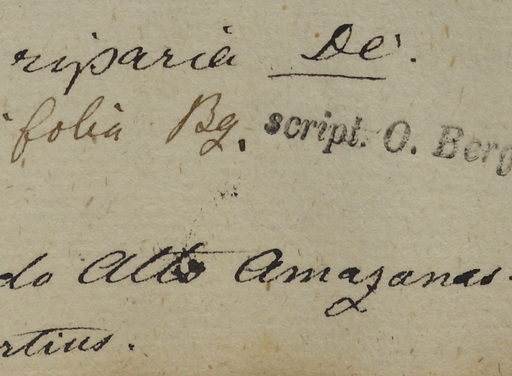 riparia DC.
folia Bg. script. O. Berg
do Alto Amazonas.
rtius.